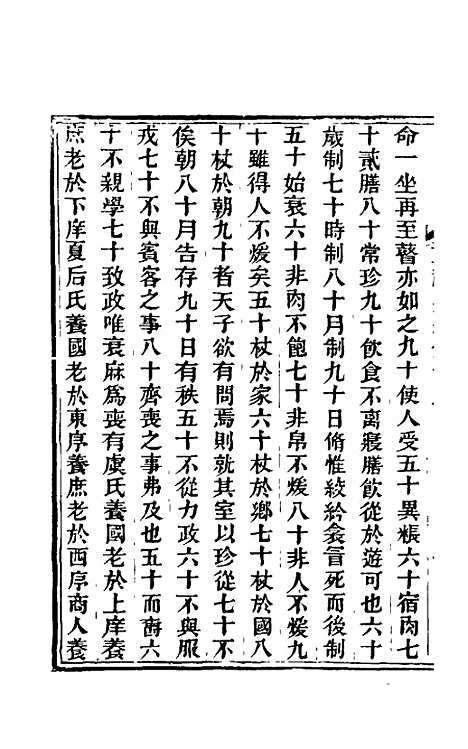 命一坐再至瞽亦如之九十使人受五十異粻六十宿肉七
十貳膳八十常珍九十飮食不離寢膳飮從於遊可也六十
歲制七十時制八十月制九十日脩惟絞紟衾冒死而後制
五十始衰六十非肉不飽七十非帛不煖八十非人不煖九
十雖得人不煖矣五十杖於家六十杖於鄉七十杖於國八
十杖於朝九十者天子欲有問焉則就其室以珍從七十不
俟朝八十月告存九十日有秩五十不從力政六十不與服
戎七十不與賓客之事八十齊喪之事弗及也五十而爵六
十不親學七十致政唯衰麻爲喪有虞氏養國老於上庠養
庶老於下庠夏后氏養國老於東序養庶老於西序商人養